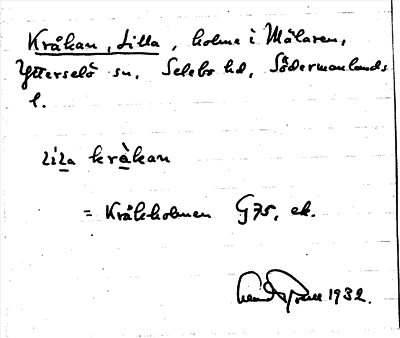 Kråkan, Lilla, holme i Mälaren,
Ytterselö sn, Selebo hd, Södermanlands
l.
lila kråkan
= Kråkholmen G75, ek.
1932.